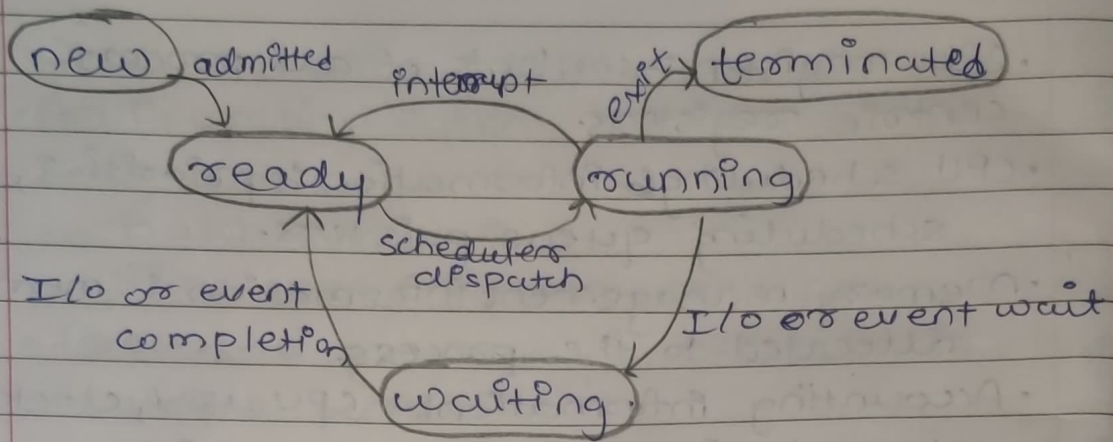 new admitted
interrupt
exit
terminated
ready
running
schedulers
dispatch
I/O or event
completion
I/O or event wait
waiting